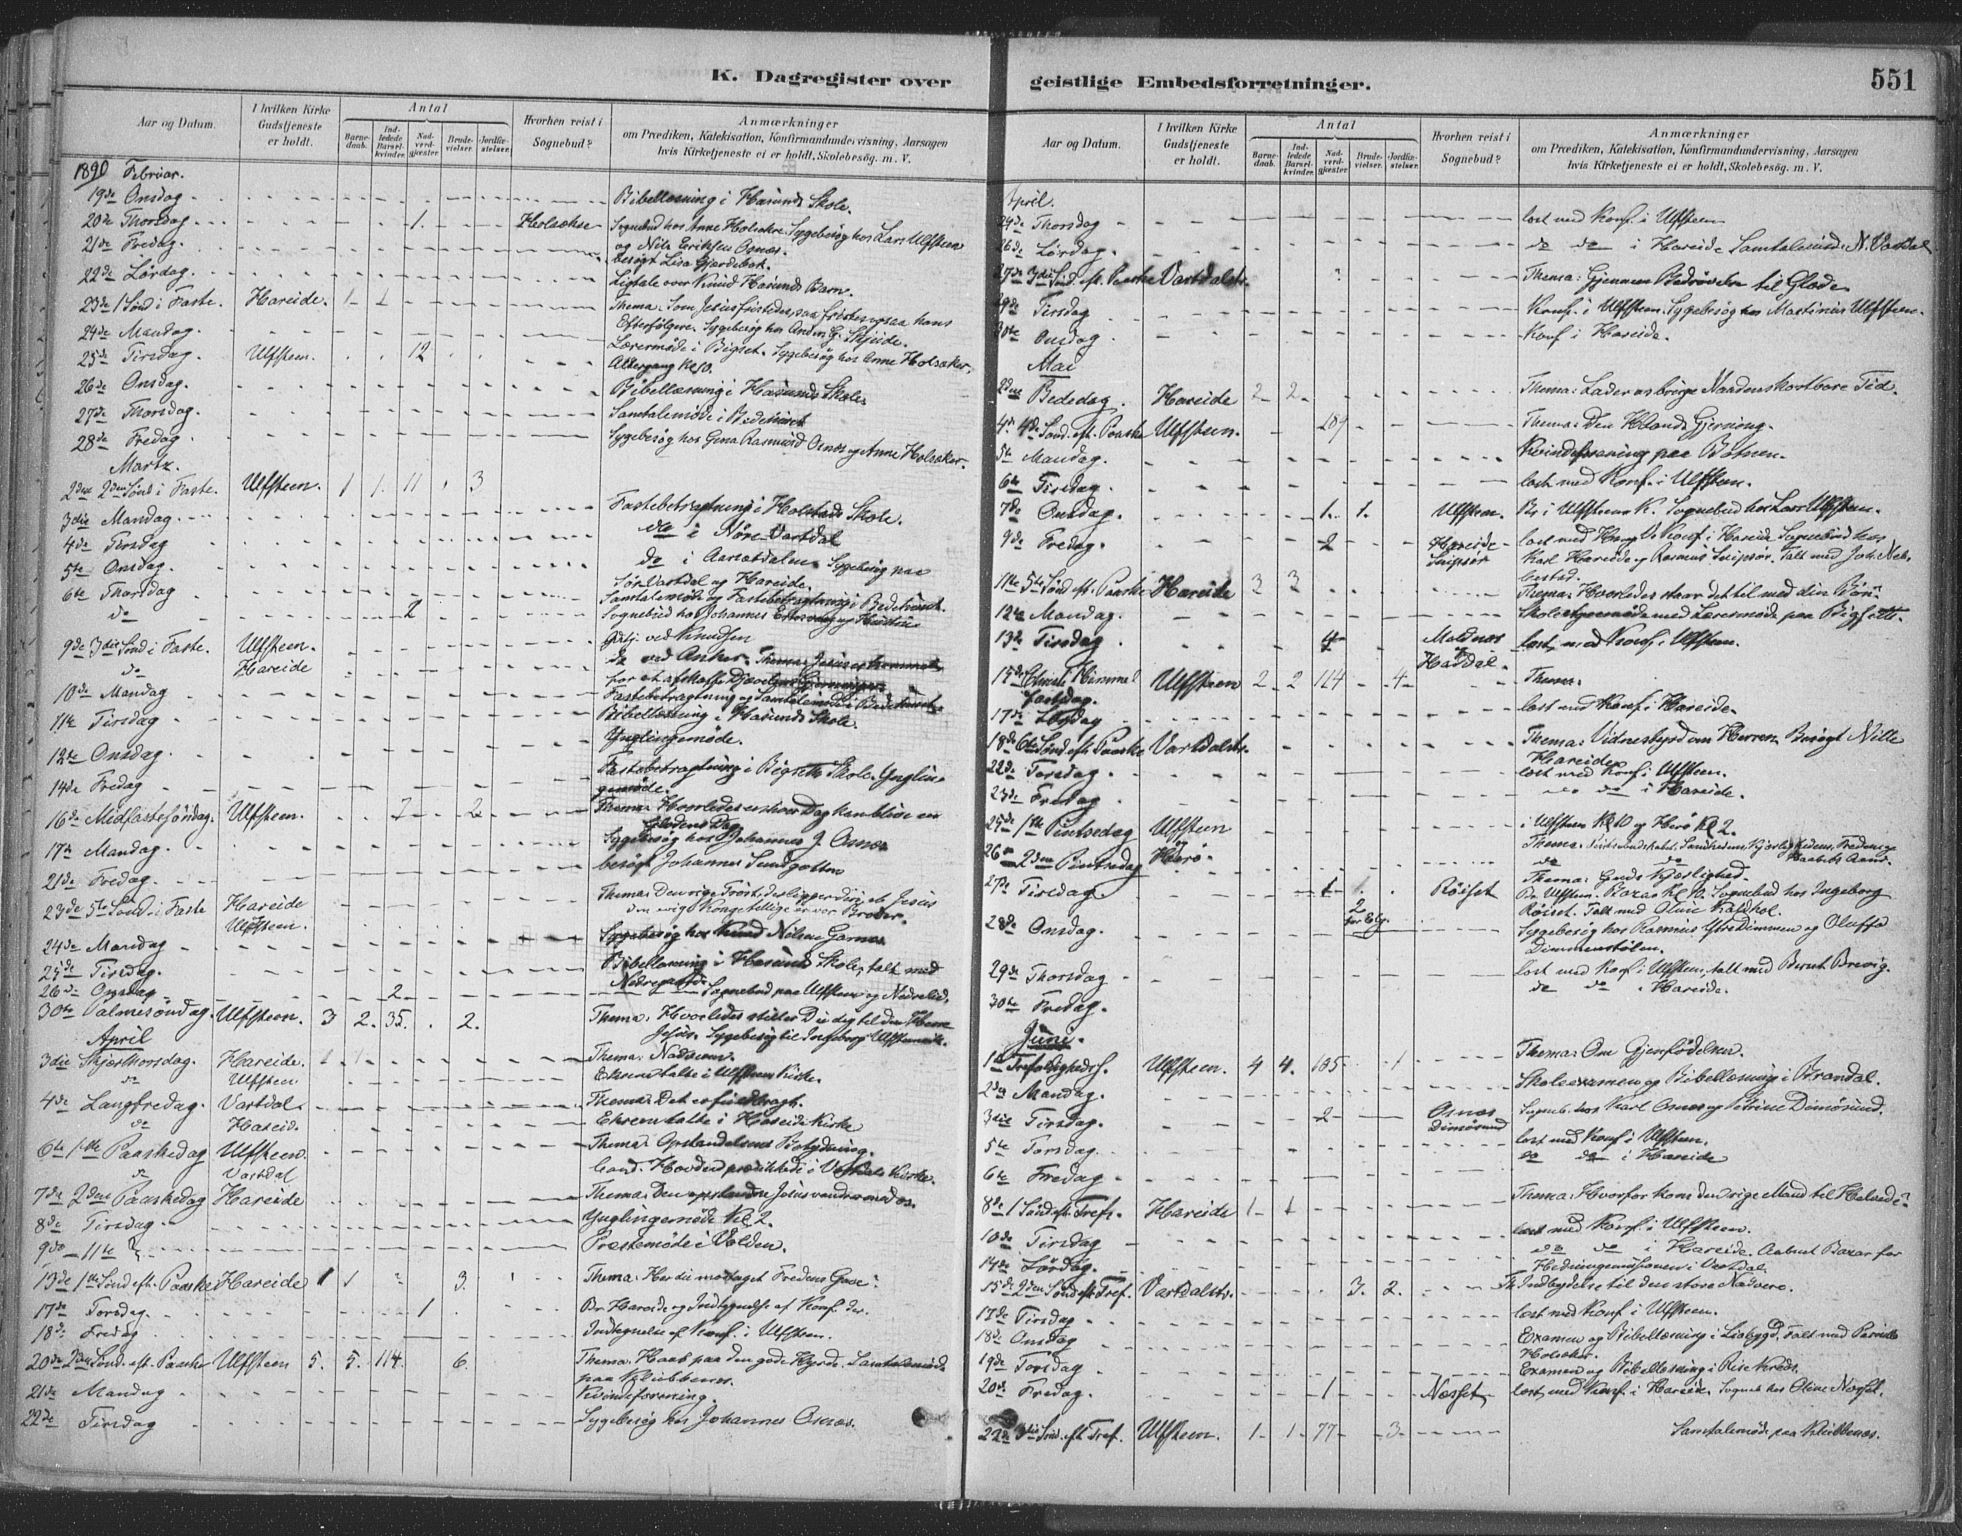 K. Dagregister over geistlige Embedsforretninger.
551
Aar og Datum.
I hvilken Kirke Gudstjeneste er holdt.
Antal
Barnedaab.
Indledede Barselkvinder.
Nadverdgjæster
Brudevielser.
Jordfæstelser.
Hvorhen reist i Sognebud?
Anmærkninger
om Prædiken, Katekisation, Konfirmandundervisning, Aarsagen
hvis Kirketjeneste ei er holdt, Skolebesøg. m. V.
1890 Februar.
19de Onsdag Bibellæsning i Hasunds Skole.
20de Thorsdag 1. Holsække Sognebud hos Anne Holsækre. Sygebesøg hos Lars Ulfsteen
21de Fredag. og Nils Eriksen Osnæs.
22de Lørdag. Ligtale over Knud Hasunds Barn.
23de 1 Sønd i Faste. Hareide. 1 1 Thema: Som Jesus fristedes, saa fristes ogsaa hans
24de Mandag Efterfølgere. Sygebesøg hos Anders G. Skjeide.
25de Tirsdag. Ulfsteen. 12 Lærermøde i Bigset. Sygebesøg hos Anne Holsæker.
Altergang Kl 10.
26de Onsdag. Bibellæsning i Hasunds Skole
27de Thorsdag. Samtalemøde i Bedehuset
28de Fredag Sygebesøg hos Gina Rasmusd Osnæs og Anne Holsæker.
Martz.
2den 2den Sønd i Faste. Ulfsteen. 1 1. 11 3
3die Mandag. Fastebetragtning i Holstads Skole.
4de Tirsdag do i Nøre Vartdal
5te Onsdag. do i Aarsætdalen. Sygebesøg paa
6te Thorsdag Sør Vartdal og Hareide.
do 2 Samtalemøde og Fastebetragtning i Bedehuset.
9de 3die Sønd i Faste. Ulfsteen. ved Knudsen
do Hareide do ved Anker.
10de Mandag Fastebetragtning og Samtalemøde i Bedehuset.
11te Tirsdag Bibellæsning i Hasunds Skole.
12te Onsdag. Ynglingemøde.
14de Fredag Fastebetragtning i Bigseth Skole. Ynglingemøde.
16de Midfastesøndag. Ulfsteen. 7 2. Thema: Hvorledes enhver Dag kan blive en
Glædens Dag
17de Mandag. Sygebesøg hos Johannes J. Osnæs
21de Fredag. besøgt Johannes Sundgotten
23de 5te Sønd i Faste Hareide
Ulfsteen.
24de Mandag
25de Tirsdag. Bibellæsning i Hasunds Skole, talt med
26de Onsdag 2 Sognebud paa Ulfsteen og Nedrelid.
30te Palmesøndag. Ulfsteen. 3 2. 35. 2. Thema: Hvorledes stiller Du dig til den Herre
Jesus. Sygebesøg til Ingeborg Ulfsteen
April
3die Skjærthorsdag. Hareide. 1 1 Thema: Nadveren.
do Ulfsteen Ekren talte i Ulfsteen Kirke.
4de Langfredag. Vartdal. Thema: Det er fuldbragt.
do Hareid. Ekren talte i Hareide Kirke
6te 1ste Paaskedag Ulfsteen. Thema: Opstandelsens Betydning.
do Vartdal Cand. Hovden prædikede i Vartdals Kirke.
7de 2den Paaskedag Hareide Thema: Den opstandne Jesus
8de Tirsdag Ynglingemøde Kl 2.
9de — 11te Præstemøde i Volden.
13de 1ste Sønd eft. Paaske Hareide 1 1 3. Thema: Har du modtaget Fredens Gave?
17de Torsdag. 1. Br Hareide og Indtegnelse af Konf. der.
18de Fredag Indtegnelse af Konf. i Ulfsteen.
20de 2den Sønd. eft. Paaske Ulfsteen 5. 5. 114. 6. Thema: Haab paa den gode Hyrde. Samtalemøde
paa Klubbenæs.
21de Mandag Kvindeforening.
22de Tirsdag Sygebesøg hos Johannes Osnæs.
April.
24de Thorsdag læst med Konf. i Ulfsteen
26de Lørdag. do do i Hareide Samtalemøde N. Vartdal
27de 3die Sønd. eft. Paaske Vartdalstr. Thema: Gjennem Bedrøvelse til Glæde.
29de Tirsdag Konf. i Ulfsteen. Sygebesøg hos Martinus Ulfsteen.
30te Onsdag Konf i Hareide.
Mai
2den Bededag. Hareide 2 2
4de 4de Sønd. eft. Paaske Ulfsteen. 109 Thema: Den Hellig Aands Gjerning.
5te Mandag. Kvindeforening paa Botnen.
6te Tirsdag. læst med Konf. i Ulfsteen.
7de Onsdag. 1. 1. Ulfsteen. Br i Ulfsteen K. Sognebud hos Lars Ulfsteen.
9de Fredag. 2 Hareide Snipsør Konf i Hareide Sognebud hos
Karl Hareide og Rasmus Snipsør. Talt med Joh. Nebbestad.
11te 5te Sønd eft. Paaske Hareide 3 3 Thema: Hvorledes staar det til med din Bøn?
12te Mandag. Skolestyremøde med Læremøde paa Bigsett.
13de Tirsdag. 4 Maldnæs og Haddal. læst med Konf. i Ulfsteen.
15de Christi Himmelfartsdag. Ulfsteen 2 2 114 4 Thema.
17de Lørdag læst med Konf. i Hareide.
18de 6te Sønd eft. Paaske Vartdalstr. Thema: Vidnesbyrd om Herren. Besøgt Nille
Hareide
22de Torsdag. læst med Konf. i Ulfsteen.
23de Fredag do do i Hareide.
25de 1ste Pintsedag Ulfsteen og Herø. i Ulfsteen Kl 10 og Herø Kl 2.
26de 2den Pintsedag
27de Tirsdag 1 Røiset Sognebud hos Ingeborg
Røiset. Talt med Oline Kaldhol.
28de Onsdag. Sygebesøg hos Rasmus Ytre Dimmen og Oluffa
Dimmenstølen.
29de Thorsdag læst med Konf. i Ulfsteen, talt med Bernt Brevig.
30te Fredag. do do i Hareide.
Juni.
1ste Trefoldighedsf. Ulfsteen. 4 4. 105 1 Thema: Om Gjenfødelsen.
2den Mandag. Skoleexamen og Bibellæsning i Brandal.
3die Tirsdag. 2 Osnæs Dimøsund Sogneb. hos Karl Osnæs og Petrine Dimøsund.
5te Torsdag. læst med Konf. i Ulfsteen.
6te Fredag do do i Hareide
8de 1 Sønd eft. Tref. Hareide 1 1 Thema: Hvorfor kom den rige Mand til Helvede?
10de Tirsdag læst med Konf. i Ulfsteen.
14de Lørdag. do do i Hareide. Aabnet Bazar for
Hedningemissionen i Vartdal.
15de 2den Sønd eft Tref. Vartdalstr. 3. 2. Th Indbydelse til den store Nadvere.
17de Tirsdag læst med Konf i Ulfsteen.
18de Onsdag Examen og Bibellæsning i Liabygd. Talt med
Holsæker.
19de Torsdag Examen og Bibellæsning i Rise Kreds.
20de Fredag. 1 Næsset læst med Konf. i Hareide. Sogneb hos Oline Næsset.
22de 3die Sønd. eft Tref. Ulfsteen. 1 1 77 3 Samtalemøde paa Klubbenæs.